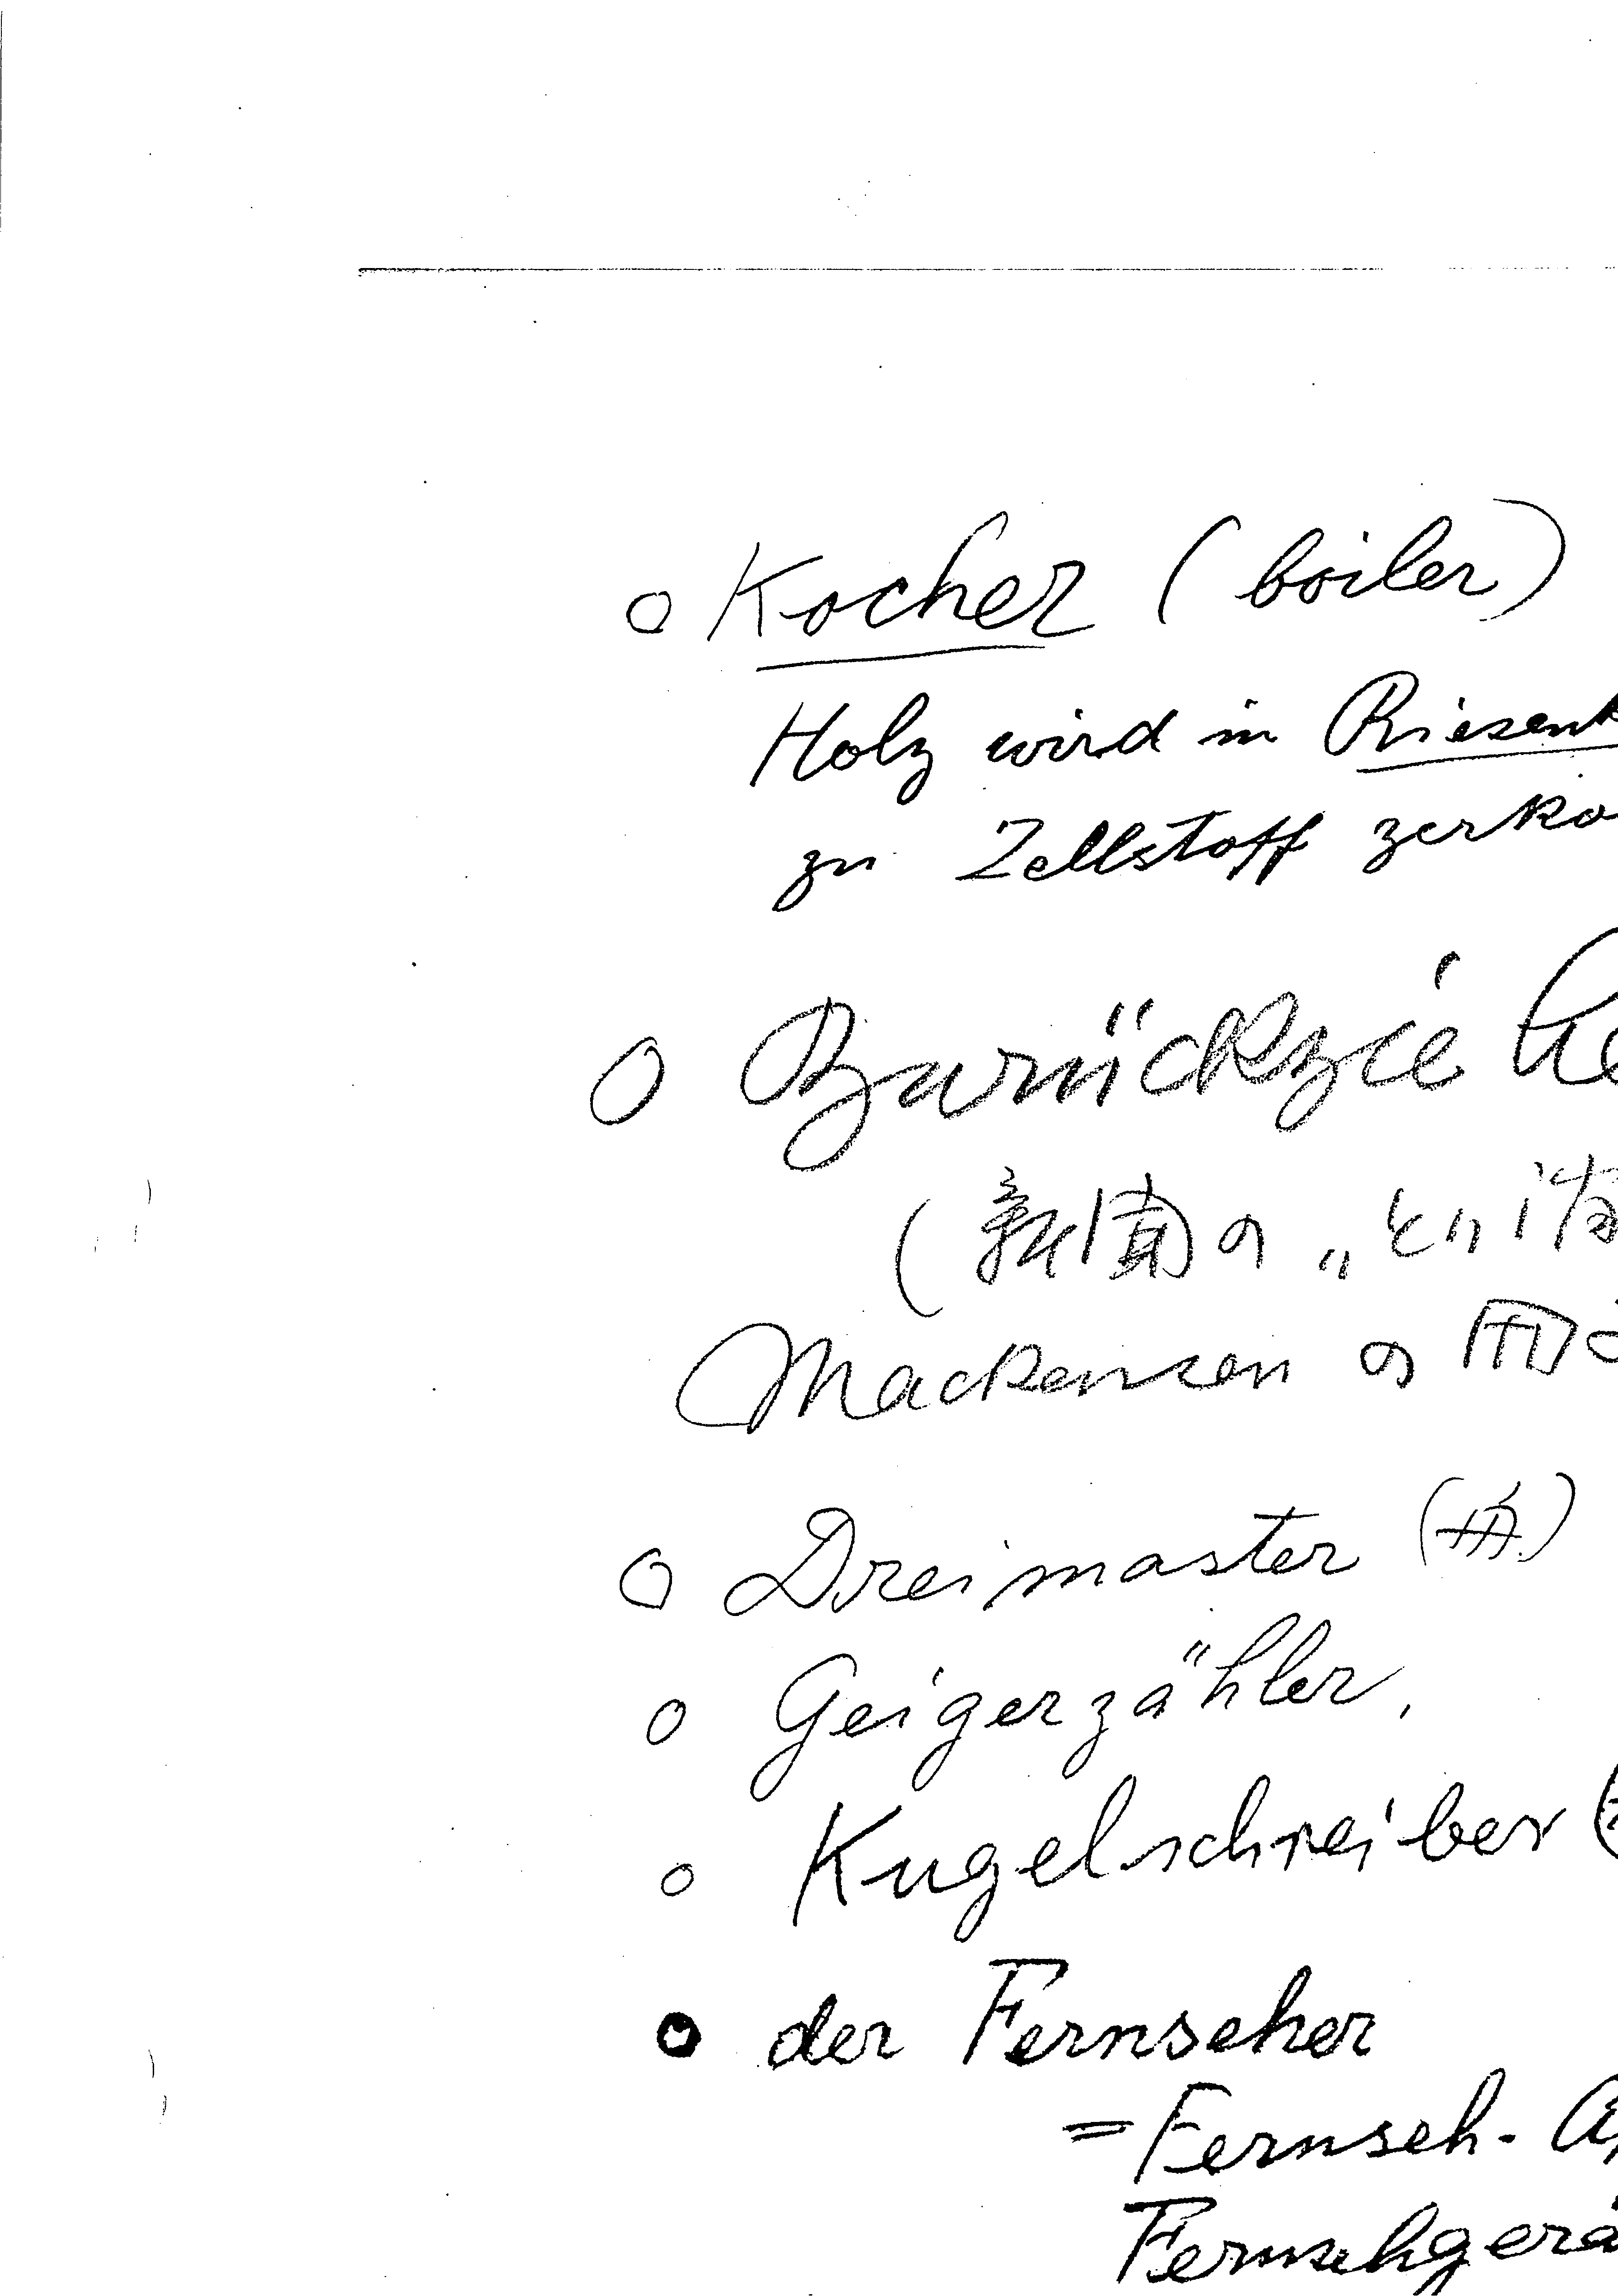 ○ Kocher (boiler)
Holz wird in Riesenk
zu Zellstoff zerko
○ Zurückziehe
の „と“
Mackensen の
○ Dreimaster
○ Geigerzähler,
○ Kugelschreiber (
○ der Fernseher
= Fernseh-A
Fernsehgerä